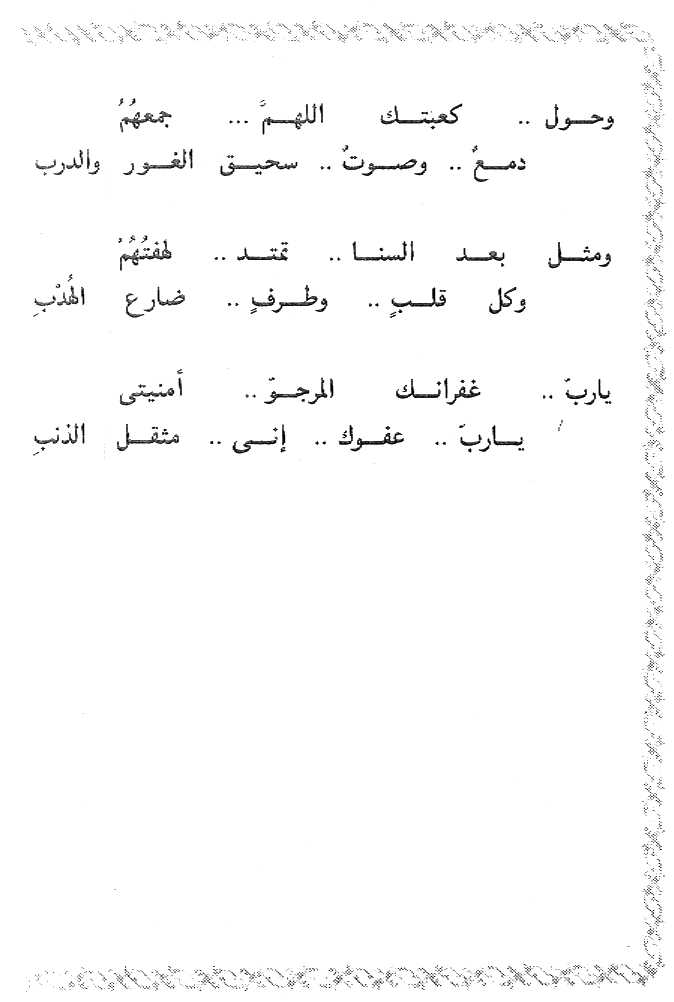 وحول .. كعبتك اللهمَّ ... جمعهُمُ
دمعٌ .. وصوتٌ .. سحيق الغور والدرب
ومثل بعد السنا .. تمتد .. لهفتُهُمُ
وكل قلبٍ .. وطرفٍ .. ضارع الهُدْبِ
ياربّ .. غفرانك المرجوّ .. أمنيتى
ياربّ .. عفوك .. إنى .. مثقل الذنبِ